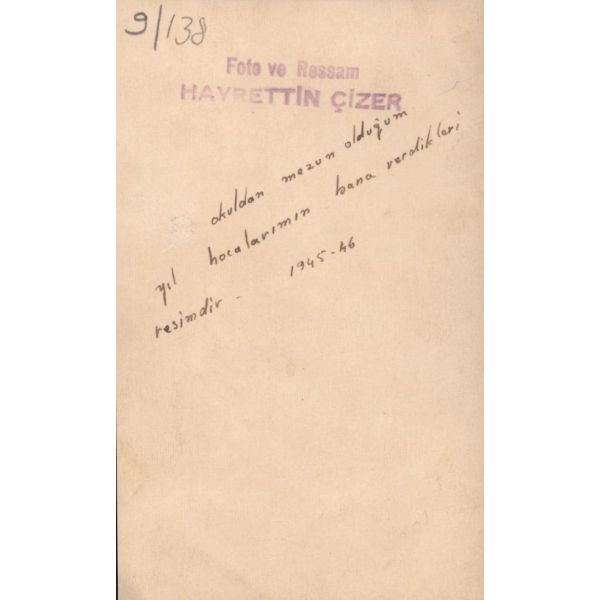 9/138
Foto ve Ressam
HAYRETTİN ÇİZER
okuldan mezun olduğum
yıl hocalarımın bana verdikleri
resimdir - 1945-46